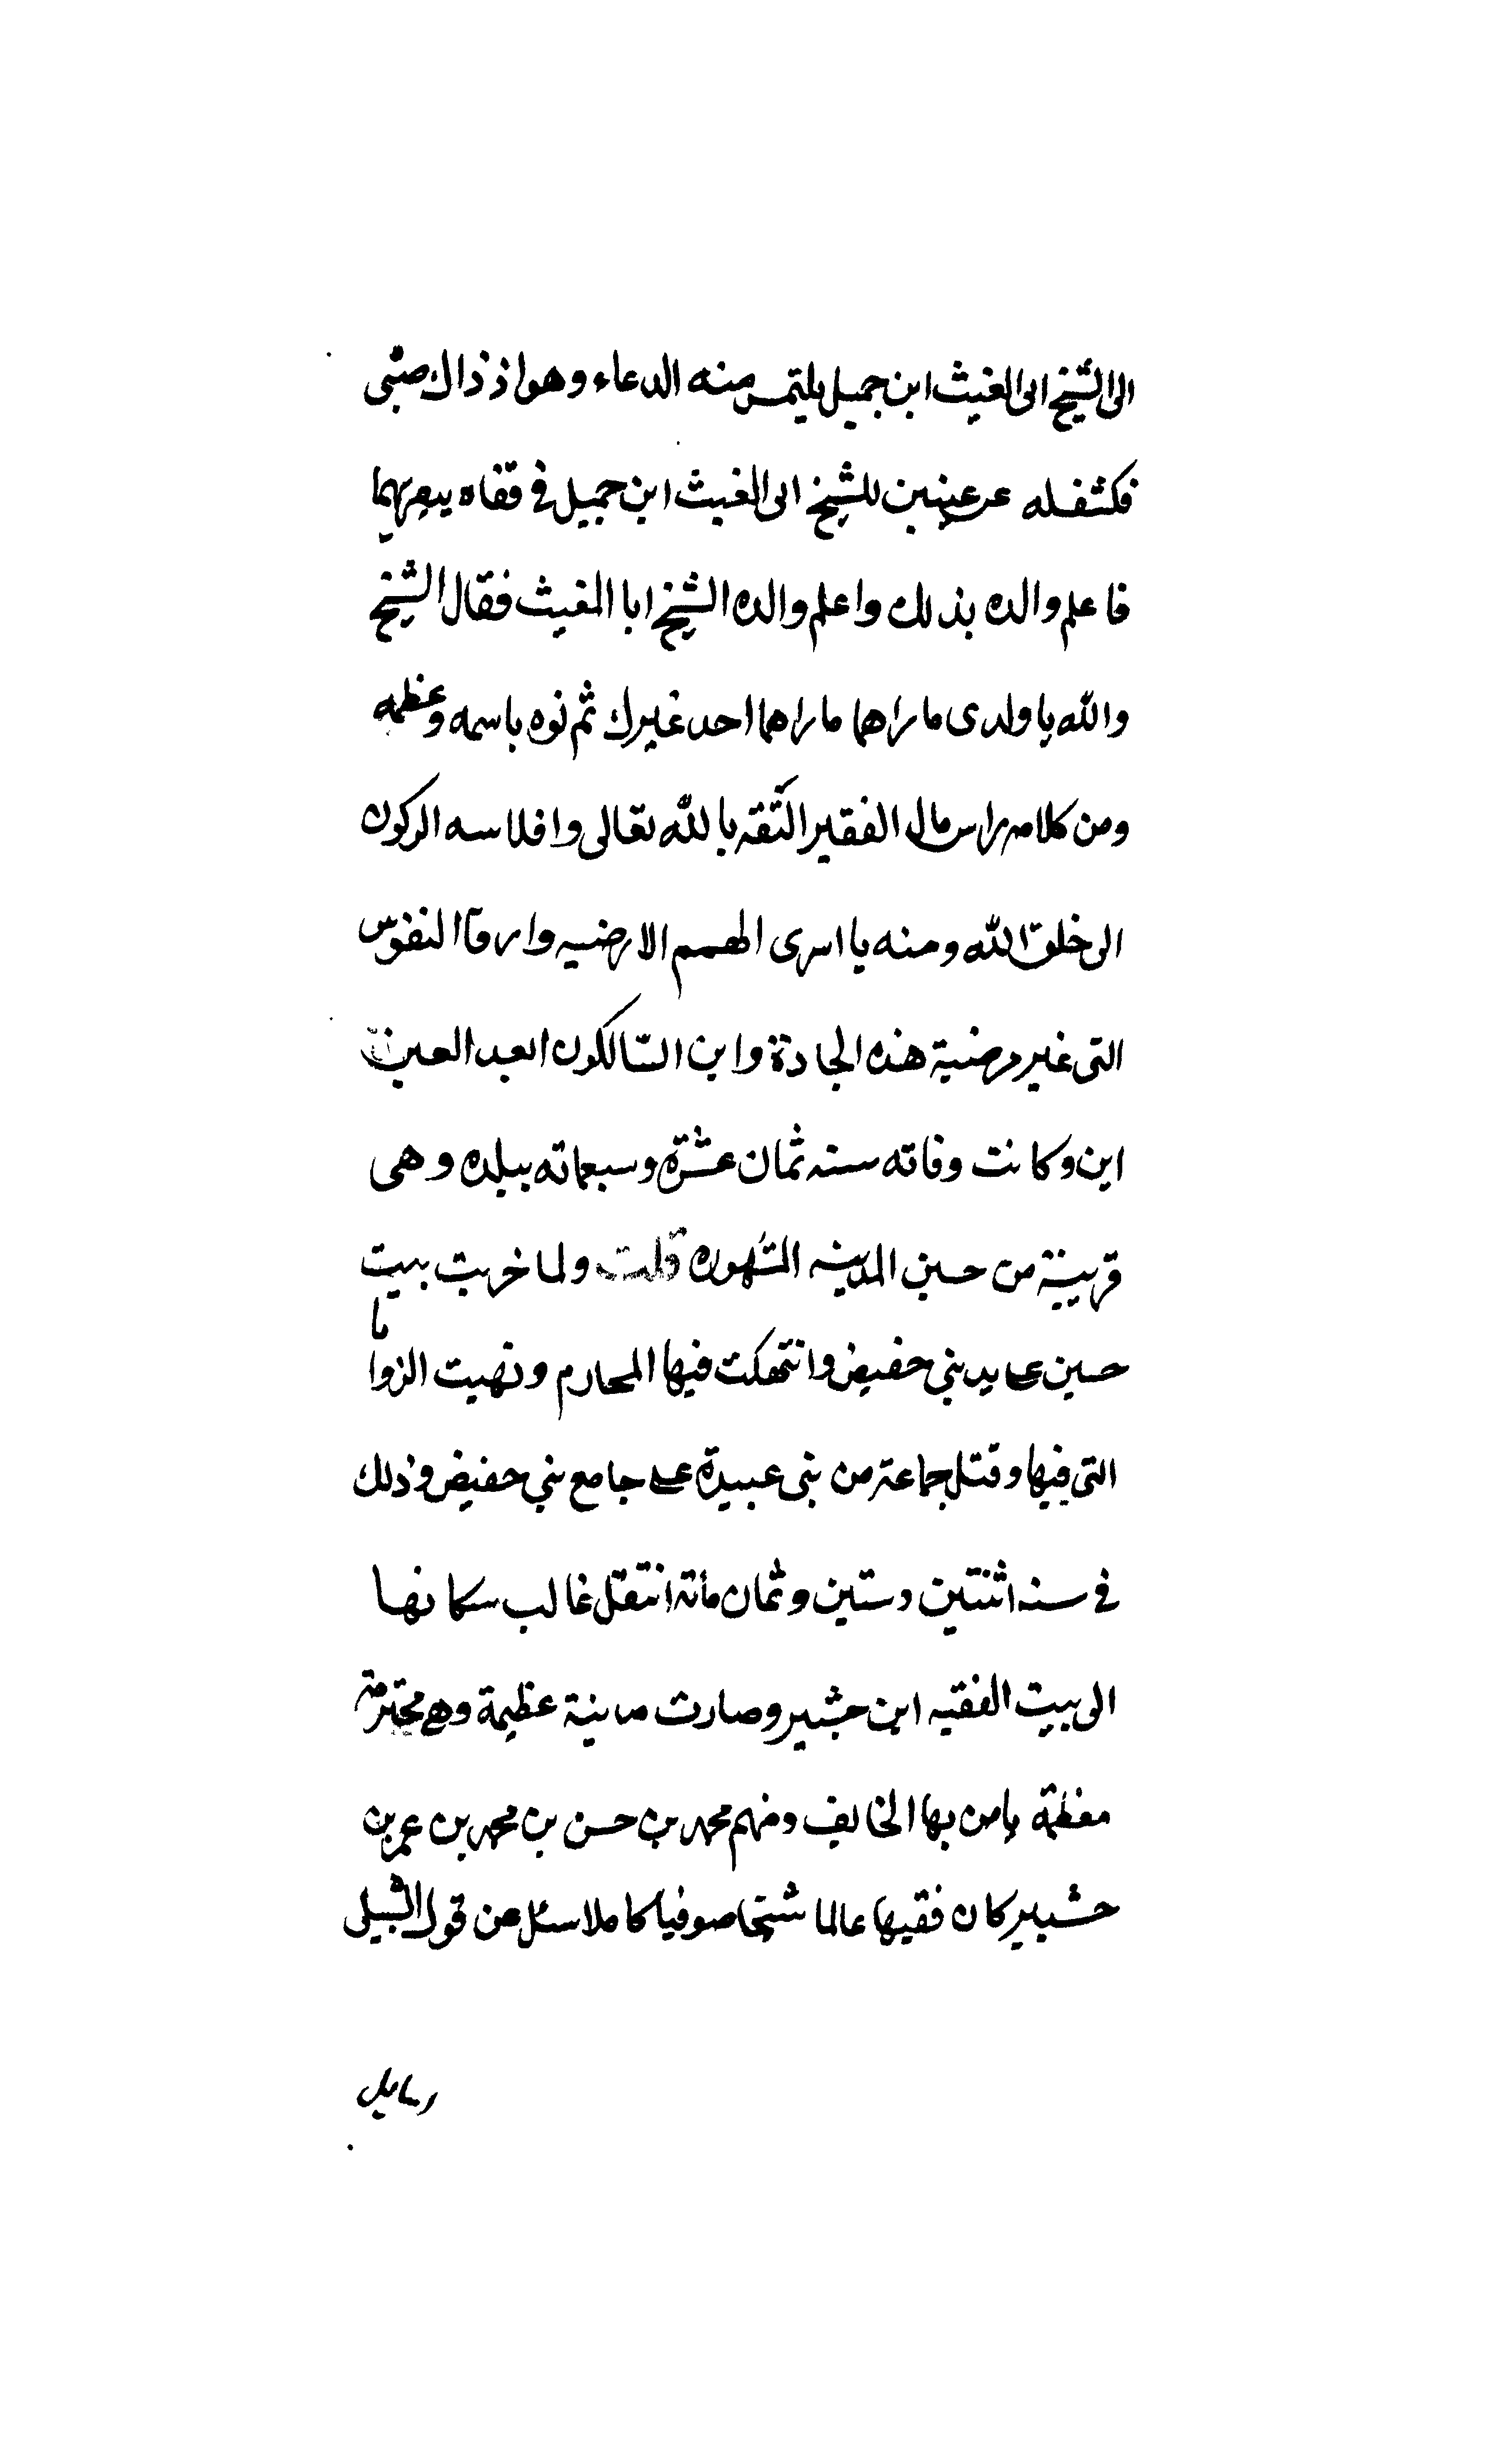 الى الشيخ ابى الغيث ابن جميل يلتمس منه الدعاء وهو اذ ذاك صبى
فكشف له عن عينين للشيخ ابى الغيث ابن جميل فى قفاه يبصر بهما
فاعلم والده بذلك واعلم والده الشيخ ابا الغيث فقال الشيخ
والله يا ولدى ما راهما ما راهما احد غيرك ثم نوه باسمه وعظمه
ومن كلامه راس مال الفقير الثقه بالله تعالى وافلاسه الركون
الى خلق الله ومنه يا اسرى الهمم الارضيه وارقآ النفوس
التى غير مرضية هذه الجادة واين السّالكون ابعد العين
اين وكانت وفاته سنه ثمان عشرة وسبعمائه ببلده وهى
قريبة من حسين المدينه المشهوره قلت ولما خربت بيت
حسين على يد بني حفيض وانتهكت فيها المحارم ونهبت الزوايا
التى فيها وقتل جماعة من بنى عبيدة على جامع بني حفيض وذلك
فى سنه اثنتين وستين وثمان مائة انتقل غالب سكانها
الى بيت الفقيه ابن حشيبر وصارت مدينة عظيمة وهي محترمة
معظمة يامن بها الخايف ومنهم محمد بن حسن بن محمد بن عمر بن
حشيبر كان فقيها عالما شيخا صوفيا كاملا سئل عن قول الشبلى